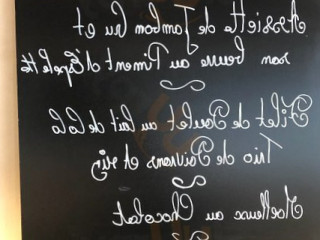 Assiette de Jambon cru et
son beurre au Piment d'Espelette
Filet de Poulet au lait de Coco
Trio de Poivrons et riz
Moelleux au Chocolat